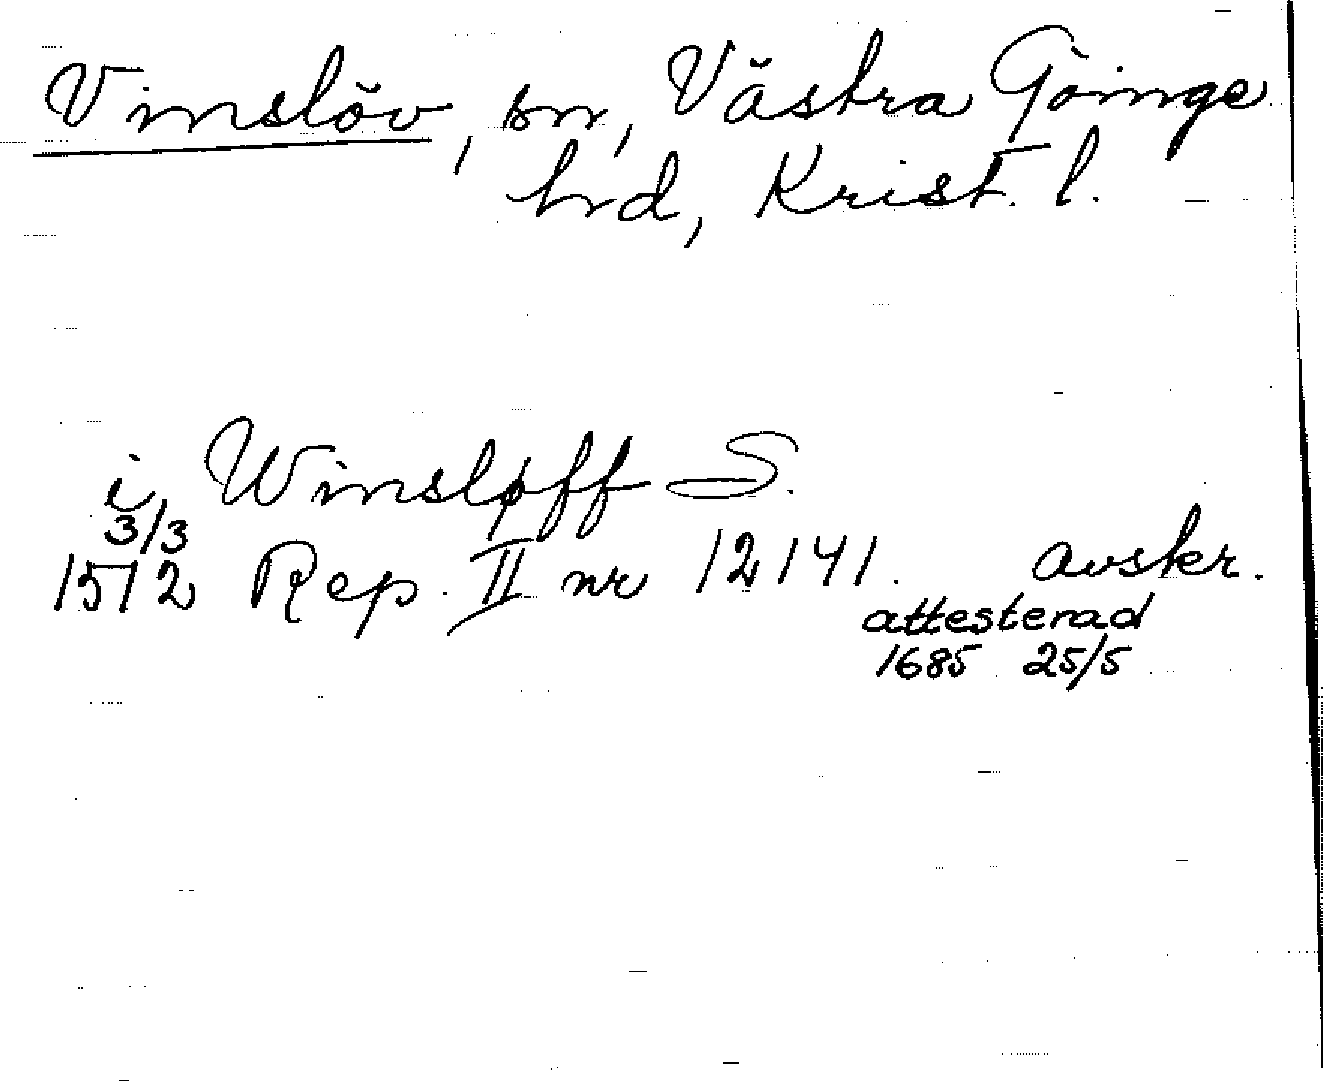 Vinslöv, sn, Västra Göinge
hrd, Krist. l.
i Winsløff S.
3/3
1512 Rep. II nr 12141. avskr.
attesterad
1685 25/5